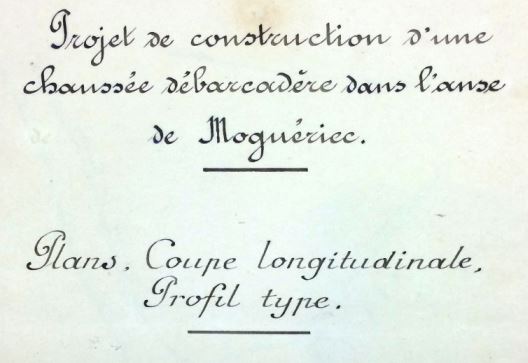 Projet de construction d'une
chaussée débarcadère dans l'anse
de Moguériec.
Plans. Coupe longitudinale,
Profil type.